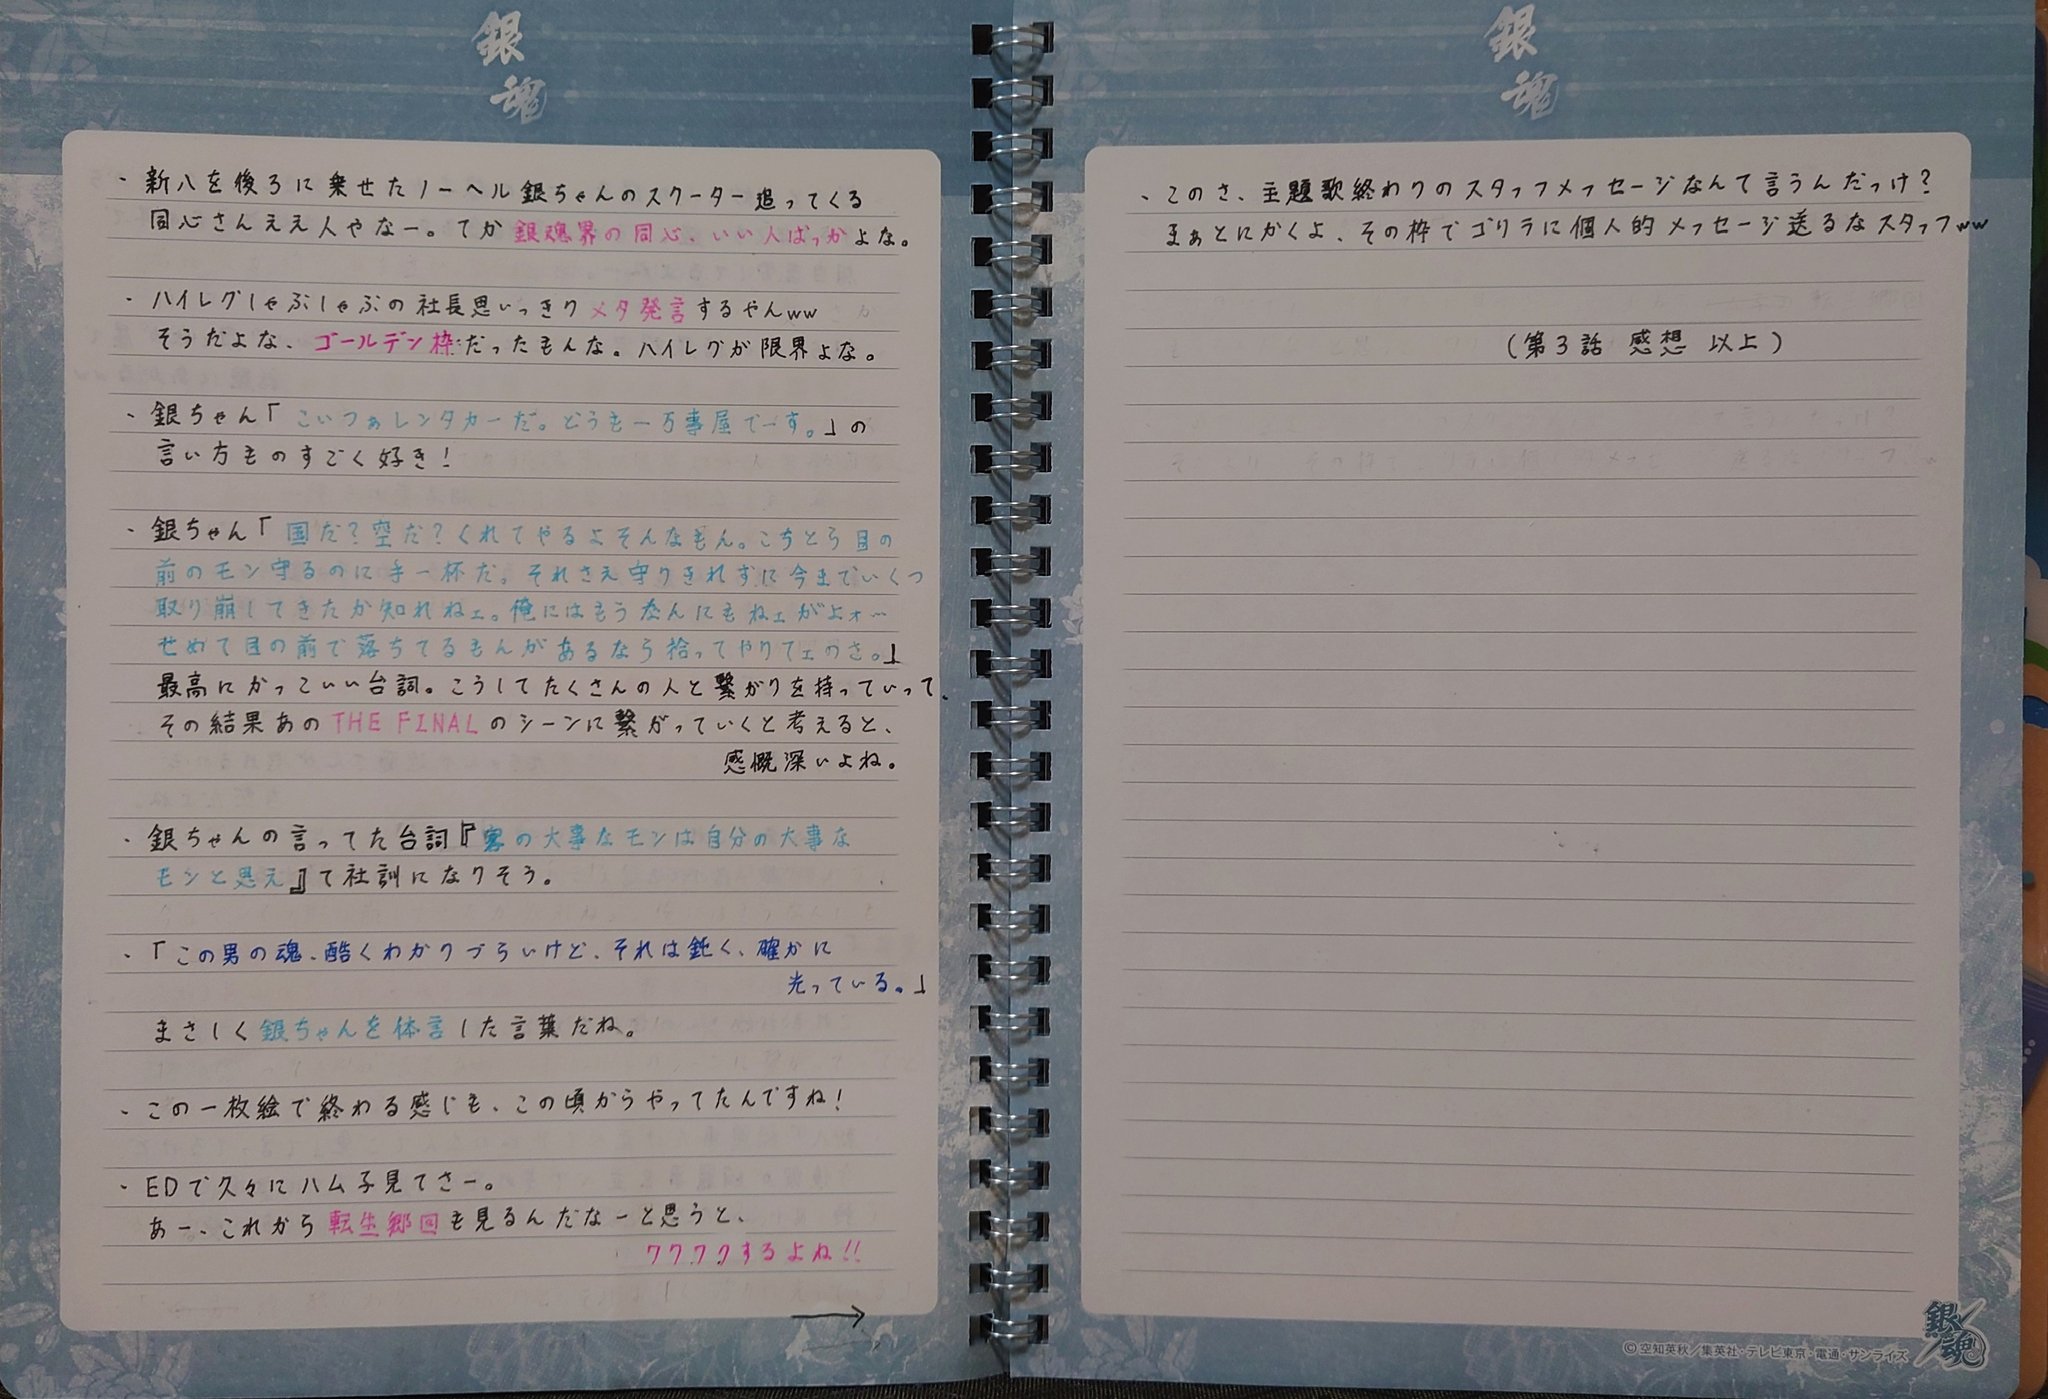 銀魂
・新八を後ろに乗せたノーヘル銀ちゃんのスクーター追ってくる
同心さんええ人やなー。てか銀魂界の同心、いい人ばっかよな。
・ハイレグしゃぶしゃぶの社長思いっきりメタ発言するやんww
そうだよな、ゴールデン枠だったもんな。ハイレグが限界よな。
・銀ちゃん「こいつぁレンタカーだ。どうも一万事屋でーす。」の
言い方ものすごく好き!
・銀ちゃん「国だ?空だ?くれてやるよそんなもん。こちとら目の
前のモン守るのに手一杯だ。それさえ守りきれずに今までいくつ
取り崩してきたか知れねェ。俺にはもうなんにもねェがよォ…
せめて目の前で落ちてるもんがあるなら拾ってやりてェのさ。」
最高にかっこいい台詞。こうしてたくさんの人と繋がりを持っていって、
その結果あのTHE FINALのシーンに繋がっていくと考えると、
感慨深いよね。
・銀ちゃんの言ってた台詞『客の大事なモンは自分の大事な
モンと思え』て社訓になりそう。
・「この男の魂、酷くわかりづらいけど、それは鈍く、確かに
光っている。」
まさしく銀ちゃんを体言した言葉だね。
・この一枚絵で終わる感じも、この頃からやってたんですね!
・EDで久々にハム子見てさー。
あー、これから転生郷回も見るんだなーと思うと、
ワクワクするよね!!
→
銀魂
・このさ、主題歌終わりのスタッフメッセージなんて言うんだっけ?
まぁとにかくよ、その枠でゴリラに個人的メッセージ送るなスタッフww
(第3話 感想 以上)
銀魂
©空知英秋/集英社・テレビ東京・電通・サンライズ